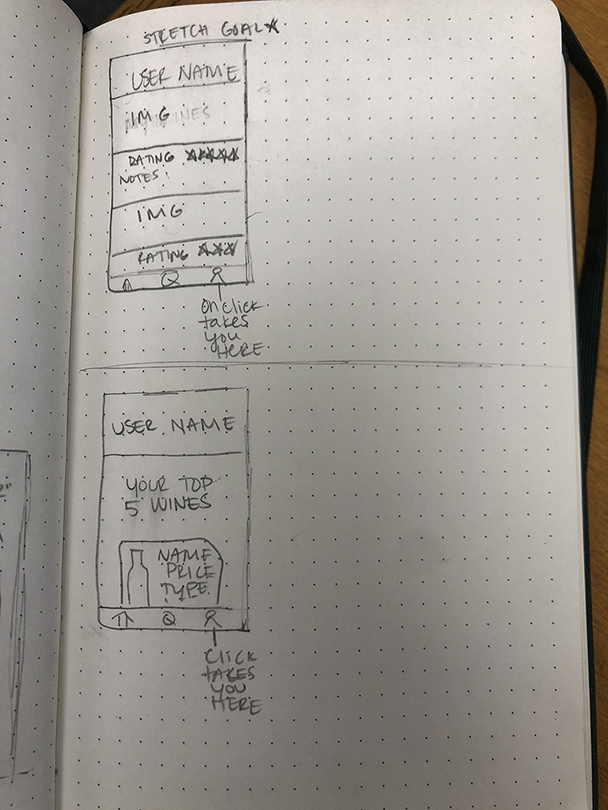 STRETCH GOAL
USER NAME
IMG
RATING
NOTES:
IMG
RATING
On click
takes
you
HERE
USER NAME
YOUR TOP
5 WINES
NAME
PRICE
TYPE
Click
TAKES
YOU
HERE